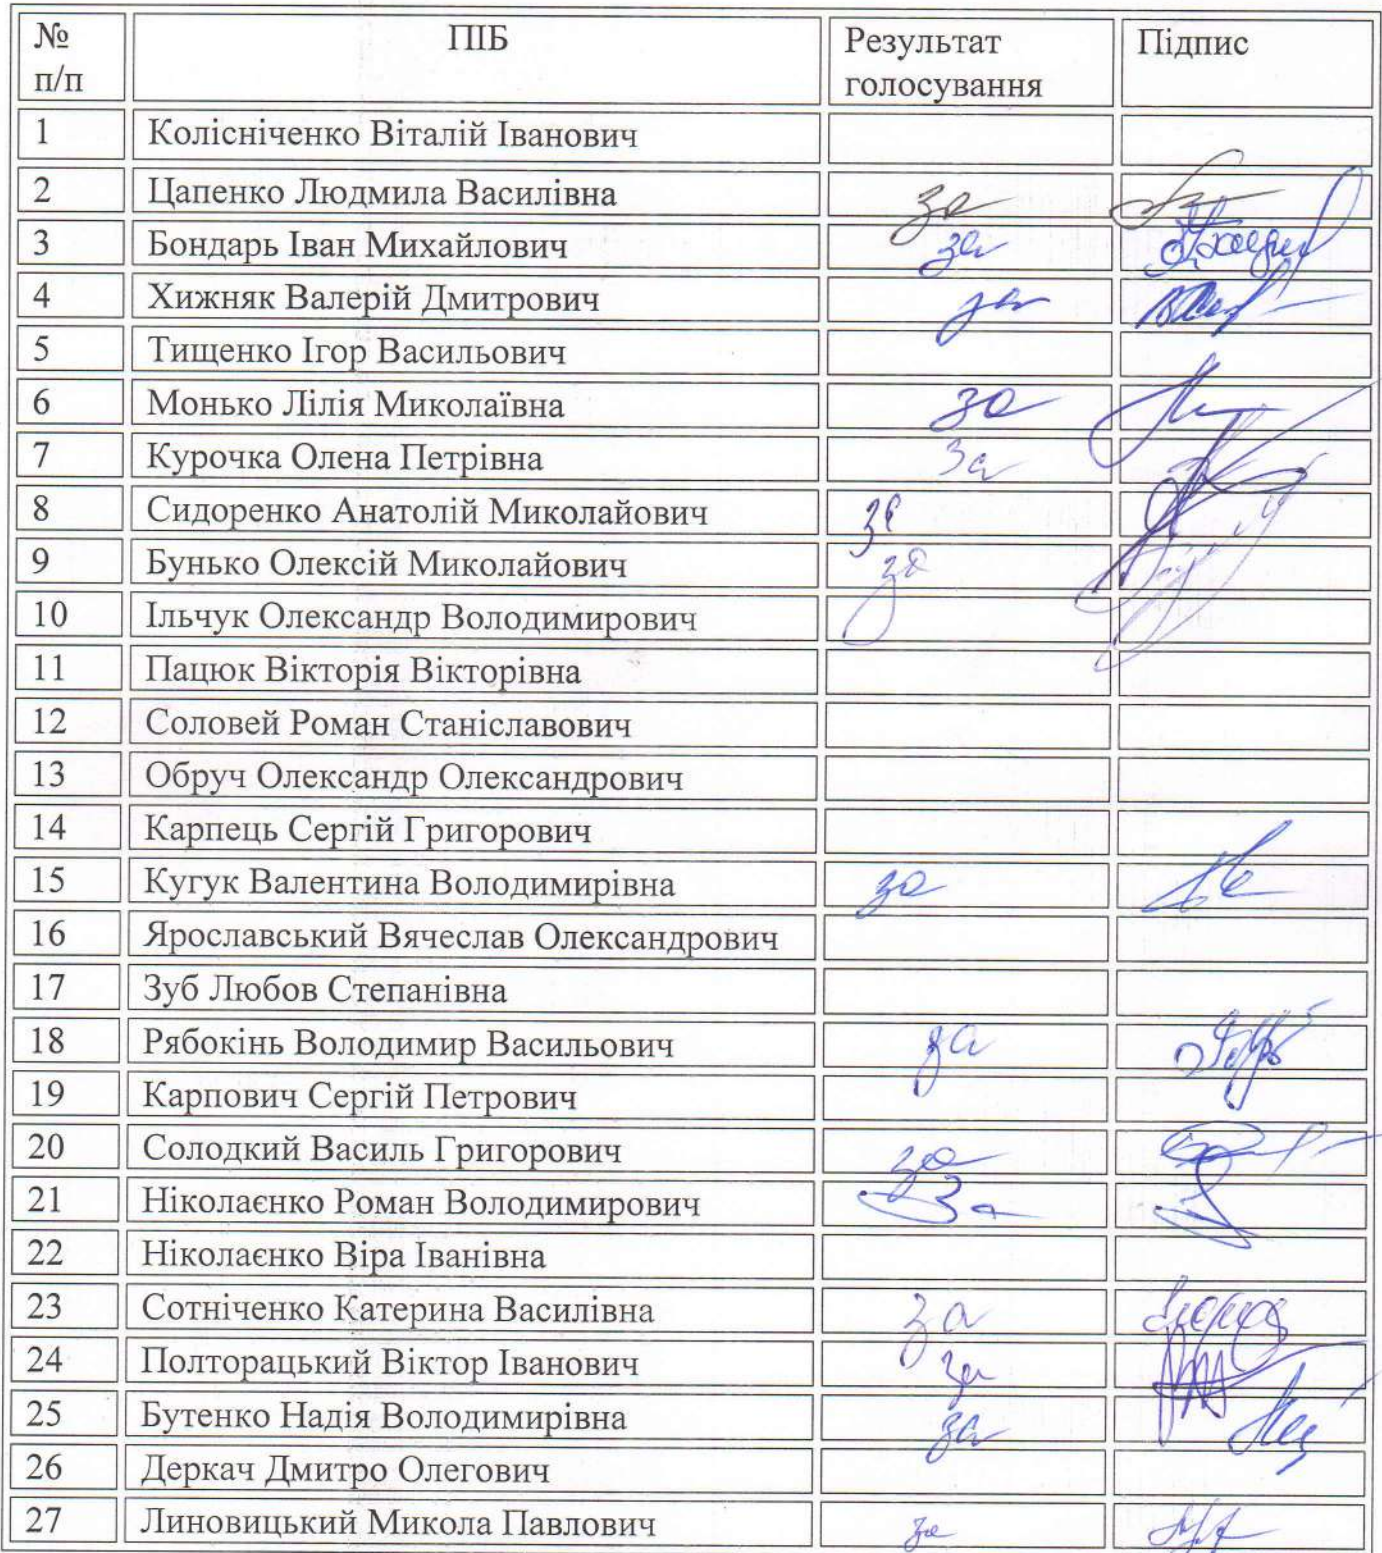 № п/п ПІБ Результат голосування Підпис
1 Колісніченко Віталій Іванович
2 Цапенко Людмила Василівна за
3 Бондарь Іван Михайлович за
4 Хижняк Валерій Дмитрович за
5 Тищенко Ігор Васильович
6 Монько Лілія Миколаївна за
7 Курочка Олена Петрівна За
8 Сидоренко Анатолій Миколайович за
9 Бунько Олексій Миколайович за
10 Ільчук Олександр Володимирович
11 Пацюк Вікторія Вікторівна
12 Соловей Роман Станіславович
13 Обруч Олександр Олександрович
14 Карпець Сергій Григорович
15 Кугук Валентина Володимирівна за
16 Ярославський Вячеслав Олександрович
17 Зуб Любов Степанівна
18 Рябокінь Володимир Васильович за
19 Карпович Сергій Петрович
20 Солодкий Василь Григорович за
21 Ніколаєнко Роман Володимирович За
22 Ніколаєнко Віра Іванівна
23 Сотніченко Катерина Василівна за
24 Полторацький Віктор Іванович за
25 Бутенко Надія Володимирівна за
26 Деркач Дмитро Олегович
27 Линовицький Микола Павлович за